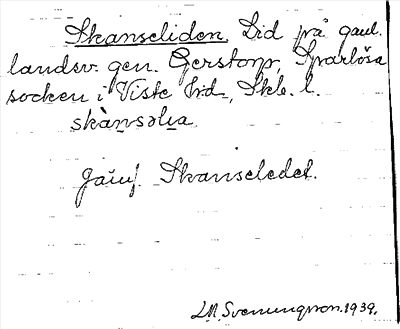 Skanseliden. Lid på gaml.
landsv. gen. Gerstorp, Sparlösa
socken i Viste hd., Skb. l.
skànsəlia
Jämf. Skansledet.
L.M. Svenungsson. 1939.